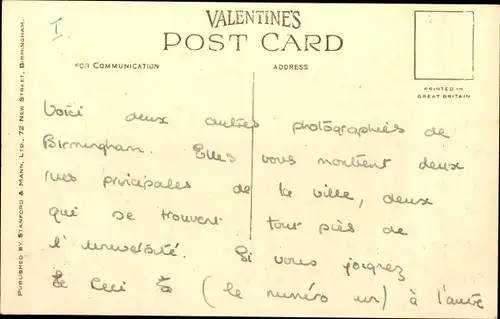 VALENTINE'S
POST CARD
I
FOR COMMUNICATION
ADDRESS
PRINTED IN
GREAT BRITAIN
PUBLISHED BY STANFORD & MANN, LTD., 72 NEW STREET, BIRMINGHAM.
Voici deux autres photographies de
Birmingham. Elles vous montrent deux
rues principales de la ville, deux
qui se trouvent tout près de
l'université. Si vous joignez
ceci (le numéro un) à l'autre